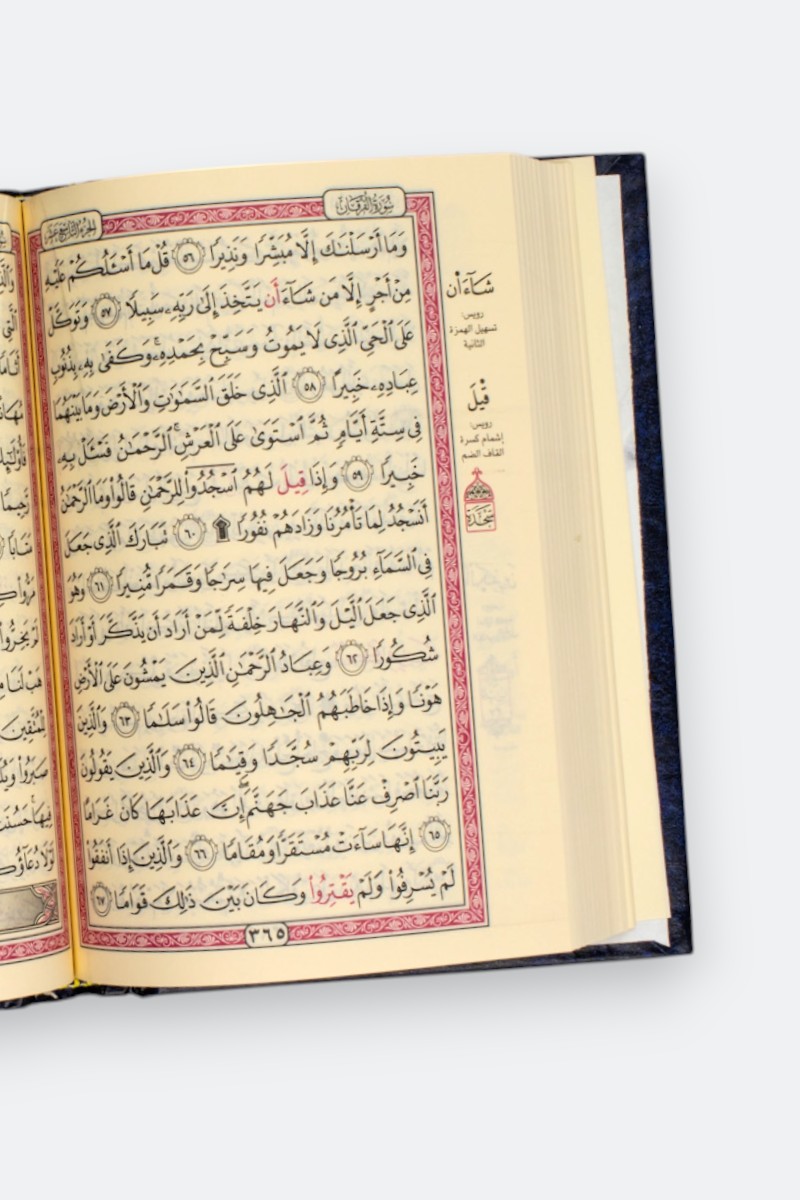 سُورَةُ الفُرْقَان
الجزء التاسع عشر
وَمَآ أَرْسَلْنَٰكَ إِلَّا مُبَشِّرًا وَنَذِيرًا ٥٦ قُلْ مَآ أَسْـَٔلُكُمْ عَلَيْهِ
مِنْ أَجْرٍ إِلَّا مَن شَآءَ أَن يَتَّخِذَ إِلَىٰ رَبِّهِۦ سَبِيلًا ٥٧ وَتَوَكَّلْ
عَلَى ٱلْحَىِّ ٱلَّذِى لَا يَمُوتُ وَسَبِّحْ بِحَمْدِهِۦ ۚ وَكَفَىٰ بِهِۦ بِذُنُوبِ
عِبَادِهِۦ خَبِيرًا ٥٨ ٱلَّذِى خَلَقَ ٱلسَّمَٰوَٰتِ وَٱلْأَرْضَ وَمَا بَيْنَهُمَا
فِى سِتَّةِ أَيَّامٍ ثُمَّ ٱسْتَوَىٰ عَلَى ٱلْعَرْشِ ۚ ٱلرَّحْمَٰنُ فَسْـَٔلْ بِهِۦ
خَبِيرًا ٥٩ وَإِذَا قِيلَ لَهُمُ ٱسْجُدُوا۟ لِلرَّحْمَٰنِ قَالُوا۟ وَمَا ٱلرَّحْمَٰنُ
أَنَسْجُدُ لِمَا تَأْمُرُنَا وَزَادَهُمْ نُفُورًا ۩ ٦٠ تَبَارَكَ ٱلَّذِى جَعَلَ
فِى ٱلسَّمَآءِ بُرُوجًا وَجَعَلَ فِيهَا سِرَٰجًا وَقَمَرًا مُّنِيرًا ٦١ وَهُوَ
ٱلَّذِى جَعَلَ ٱلَّيْلَ وَٱلنَّهَارَ خِلْفَةً لِّمَنْ أَرَادَ أَن يَذَّكَّرَ أَوْ أَرَادَ
شُكُورًا ٦٢ وَعِبَادُ ٱلرَّحْمَٰنِ ٱلَّذِينَ يَمْشُونَ عَلَى ٱلْأَرْضِ
هَوْنًا وَإِذَا خَاطَبَهُمُ ٱلْجَٰهِلُونَ قَالُوا۟ سَلَٰمًا ٦٣ وَٱلَّذِينَ
يَبِيتُونَ لِرَبِّهِمْ سُجَّدًا وَقِيَٰمًا ٦٤ وَٱلَّذِينَ يَقُولُونَ
رَبَّنَا ٱصْرِفْ عَنَّا عَذَابَ جَهَنَّمَ ۖ إِنَّ عَذَابَهَا كَانَ غَرَامًا
٦٥ إِنَّهَا سَآءَتْ مُسْتَقَرًّا وَمُقَامًا ٦٦ وَٱلَّذِينَ إِذَآ أَنفَقُوا۟
لَمْ يُسْرِفُوا۟ وَلَمْ يَقْتِرُوا۟ وَكَانَ بَيْنَ ذَٰلِكَ قَوَامًا ٦٧
٣٦٥
شَآءَ اٰن
رويس:
تسهيل الهمزة
الثانية
قِيلَ
رويس:
إشمام كسرة
القاف الضم
سَجْدَة